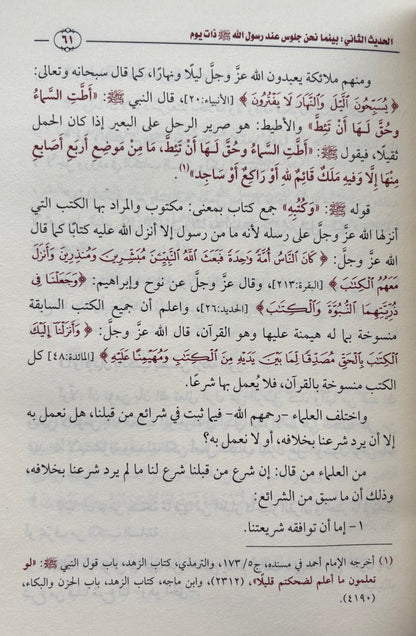 الحديث الثاني: بينما نحن جلوس عند رسول الله ﷺ ذات يوم
٦١
ومنهم ملائكة يعبدون الله عزَّ وجلَّ ليلًا ونهارًا، كما قال سبحانه وتعالى:
﴿ يُسَبِّحُونَ ٱلَّيْلَ وَٱلنَّهَارَ لَا يَفْتُرُونَ ﴾ [الأنبياء:٢٠]، قال النبي ﷺ: «أَطَّتِ السَّمَاءُ
وَحُقَّ لَهَا أَنْ تَئِطَّ» والأطيط: هو صرير الرحل على البعير إذا كان الحمل
ثقيلًا، فيقول ﷺ: «أَطَّتِ السَّمَاءُ وَحُقَّ لَهَا أَنْ تَئِطَّ، مَا مِنْ مَوْضِعِ أَرْبَعِ أَصَابِعَ
مِنْهَا إِلَّا وَفِيهِ مَلَكٌ قَائِمٌ للهِ أَوْ رَاكِعٌ أَوْ سَاجِد»(١)
قوله ﷺ: «وَكُتُبِهِ» جمع كتاب بمعنى: مكتوب والمراد بها الكتب التي
أنزلها الله عزَّ وجلَّ على رسله لأنه ما من رسول إلا أنزل الله عليه كتابًا كما قال
الله عزَّ وجلَّ: ﴿ كَانَ ٱلنَّاسُ أُمَّةً وَٰحِدَةً فَبَعَثَ ٱللَّهُ ٱلنَّبِيِّـۧنَ مُبَشِّرِينَ وَمُنذِرِينَ وَأَنزَلَ
مَعَهُمُ ٱلْكِتَٰبَ ﴾ [البقرة:٢١٣]، وقال عزَّ وجلَّ عن نوح وإبراهيم: ﴿ وَجَعَلْنَا فِى
ذُرِّيَّتِهِمَا ٱلنُّبُوَّةَ وَٱلْكِتَٰبَ ﴾ [الحديد:٢٦]، واعلم أن جميع الكتب السابقة
منسوخة بما له هيمنة عليها وهو القرآن، قال الله عزَّ وجلَّ: ﴿ وَأَنزَلْنَآ إِلَيْكَ
ٱلْكِتَٰبَ بِٱلْحَقِّ مُصَدِّقًا لِّمَا بَيْنَ يَدَيْهِ مِنَ ٱلْكِتَٰبِ وَمُهَيْمِنًا عَلَيْهِ ﴾ [المائدة:٤٨] كل
الكتب منسوخة بالقرآن، فلا يُعمل بها شرعًا.
واختلف العلماء -رحمهم الله- فيما ثبت في شرائع من قبلنا، هل نعمل به
إلا أن يرد شرعنا بخلافه، أو لا نعمل به؟
من العلماء من قال: إن شرع من قبلنا شرع لنا ما لم يرد شرعنا بخلافه،
وذلك أن ما سبق من الشرائع:
١- إما أن توافقه شريعتنا.
(١) أخرجه الإمام أحمد في مسنده، ج٥/ ١٧٣، والترمذي، كتاب الزهد، باب قول النبي ﷺ: «لو
تعلمون ما أعلم لضحكتم قليلًا»، (٢٣١٢)، وابن ماجه، كتاب الزهد، باب الحزن والبكاء،
(٤١٩٠).